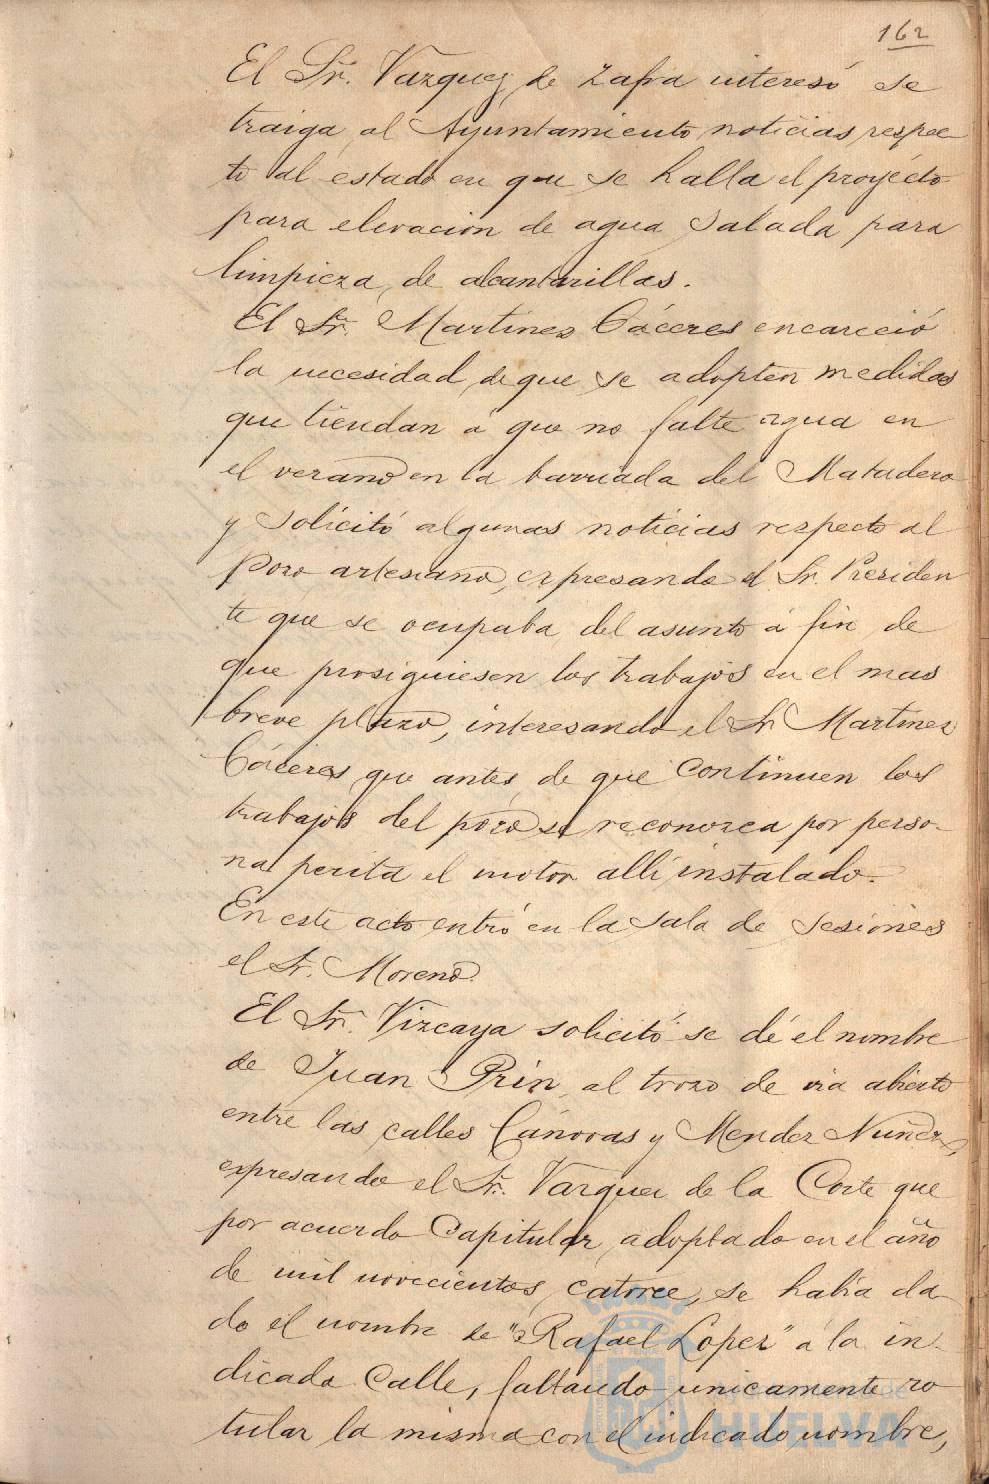 162
El Sr. Vazquez de Zafra interesó se
traiga al Ayuntamiento noticias respec
to al estado en que se halla el proyécto
para elevacion de agua salada para
limpieza de alcantarillas.
El Sr. Martinez Cáceres encareció
la necesidad de que se adopten medidas
que tiendan á que no falte agua en
el verano en la barriada del Matadero
y solicitó algunas noticias respecto al
Pozo artesiano, expresando el Sr. Presiden
te que se ocupaba del asunto á fin de
que prosiguiesen los trabajos en el mas
breve plazo, interesando el Sr Martinez
Cáceres que antes de que continuen los
trabajos del pozo se reconozca por perso-
na perita el motor allí instalado.
En este acto entró en la sala de sesiones
el Sr. Moreno.
El Sr. Vizcaya solicitó se dé el nombre
de Juan Prin al trozo de via abierto
entre las calles Cánovas y Mendez Nuñez,
expresando el Sr. Vazquez de la Corte que
por acuerdo Capitular adoptado en el año
de mil novecientos catorce, se había da
do el nombre de "Rafael Lopez" á la in-
dicada Calle, faltando unicamente ro
tular la misma con el indicado nombre,
Ayuntamiento de
HUELVA